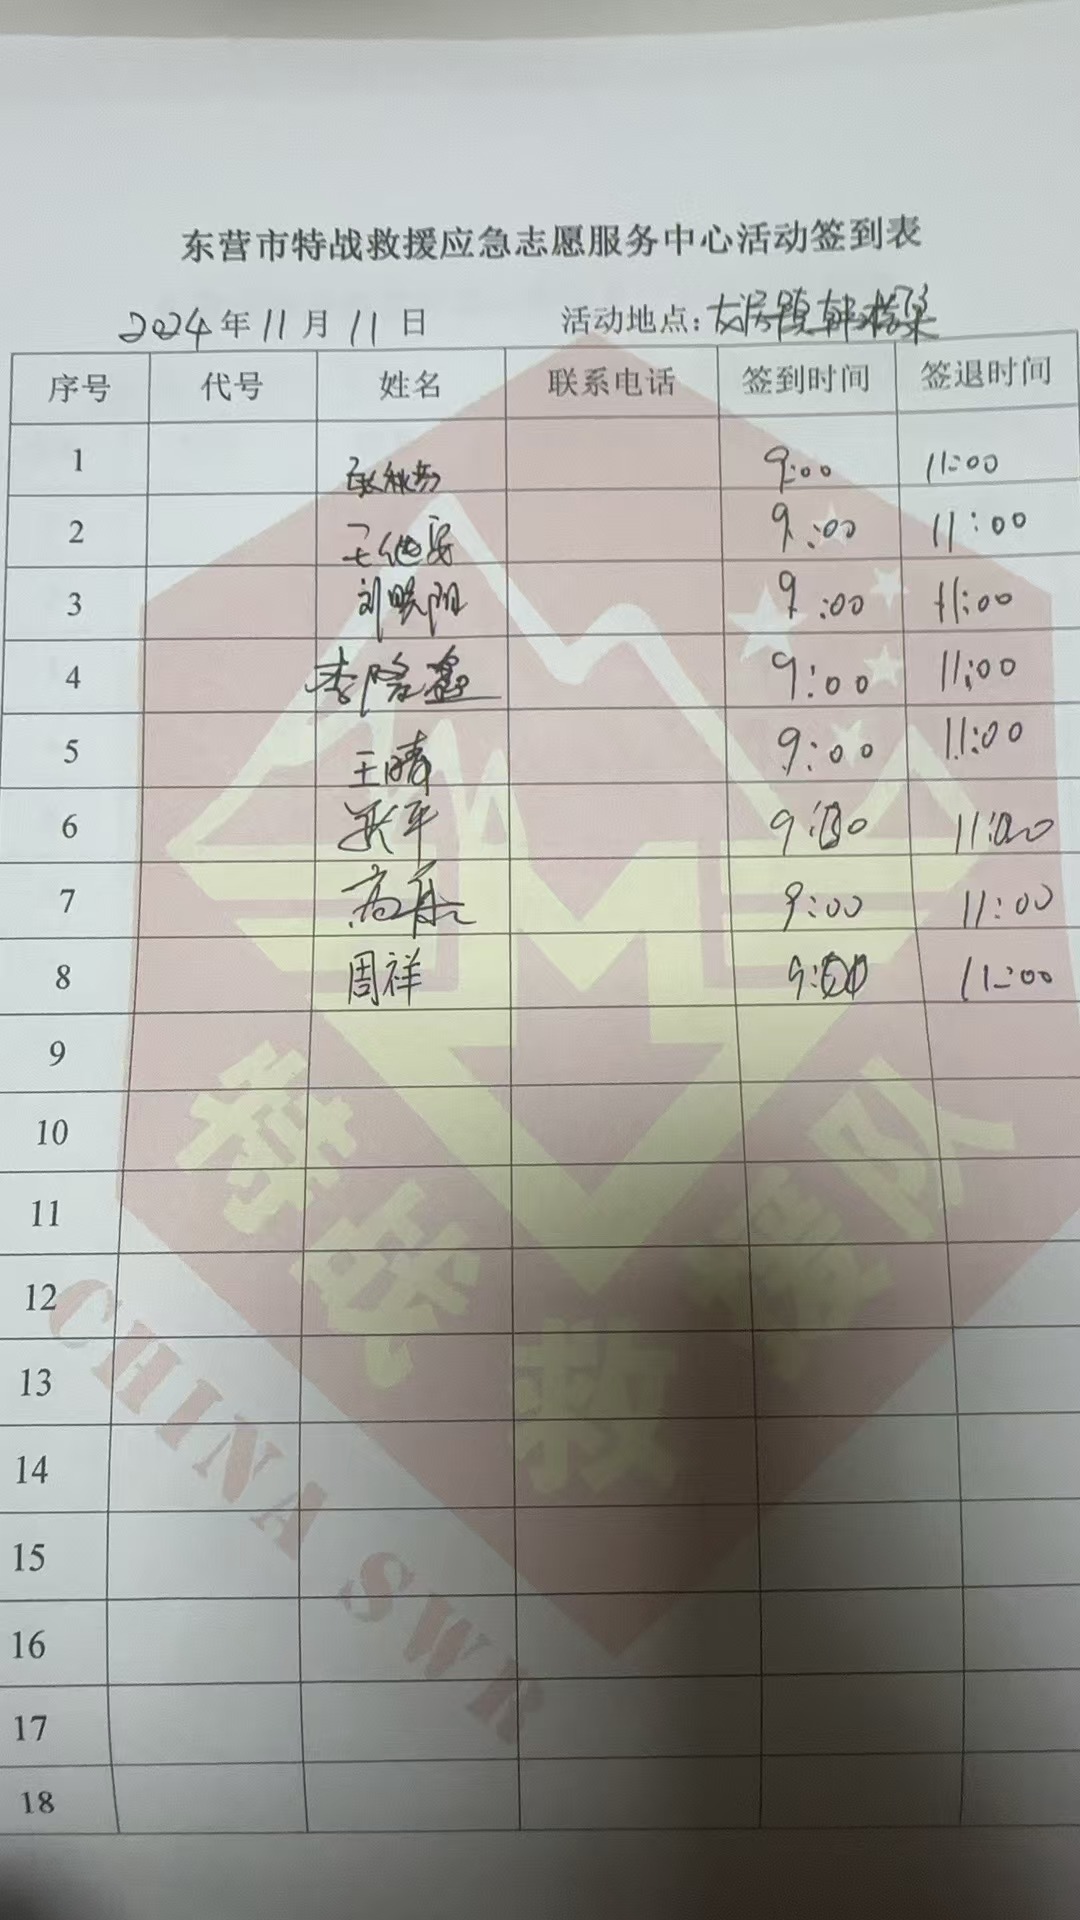 东营市特战救援应急志愿服务中心活动签到表
2024年11月11日 活动地点:
序号 代号 姓名 联系电话 签到时间 签退时间
1 9:00 11:00
2 王继安 9:00 11:00
3 刘晓阳 9:00 11:00
4 李隆鑫 9:00 11:00
5 王晴 9:00 11:00
6 9:00 11:00
7 9:00 11:00
8 周祥 9:00 11:00
9
10
11
12
13
14
15
16
17
18
特战救援队
CHINA SWR